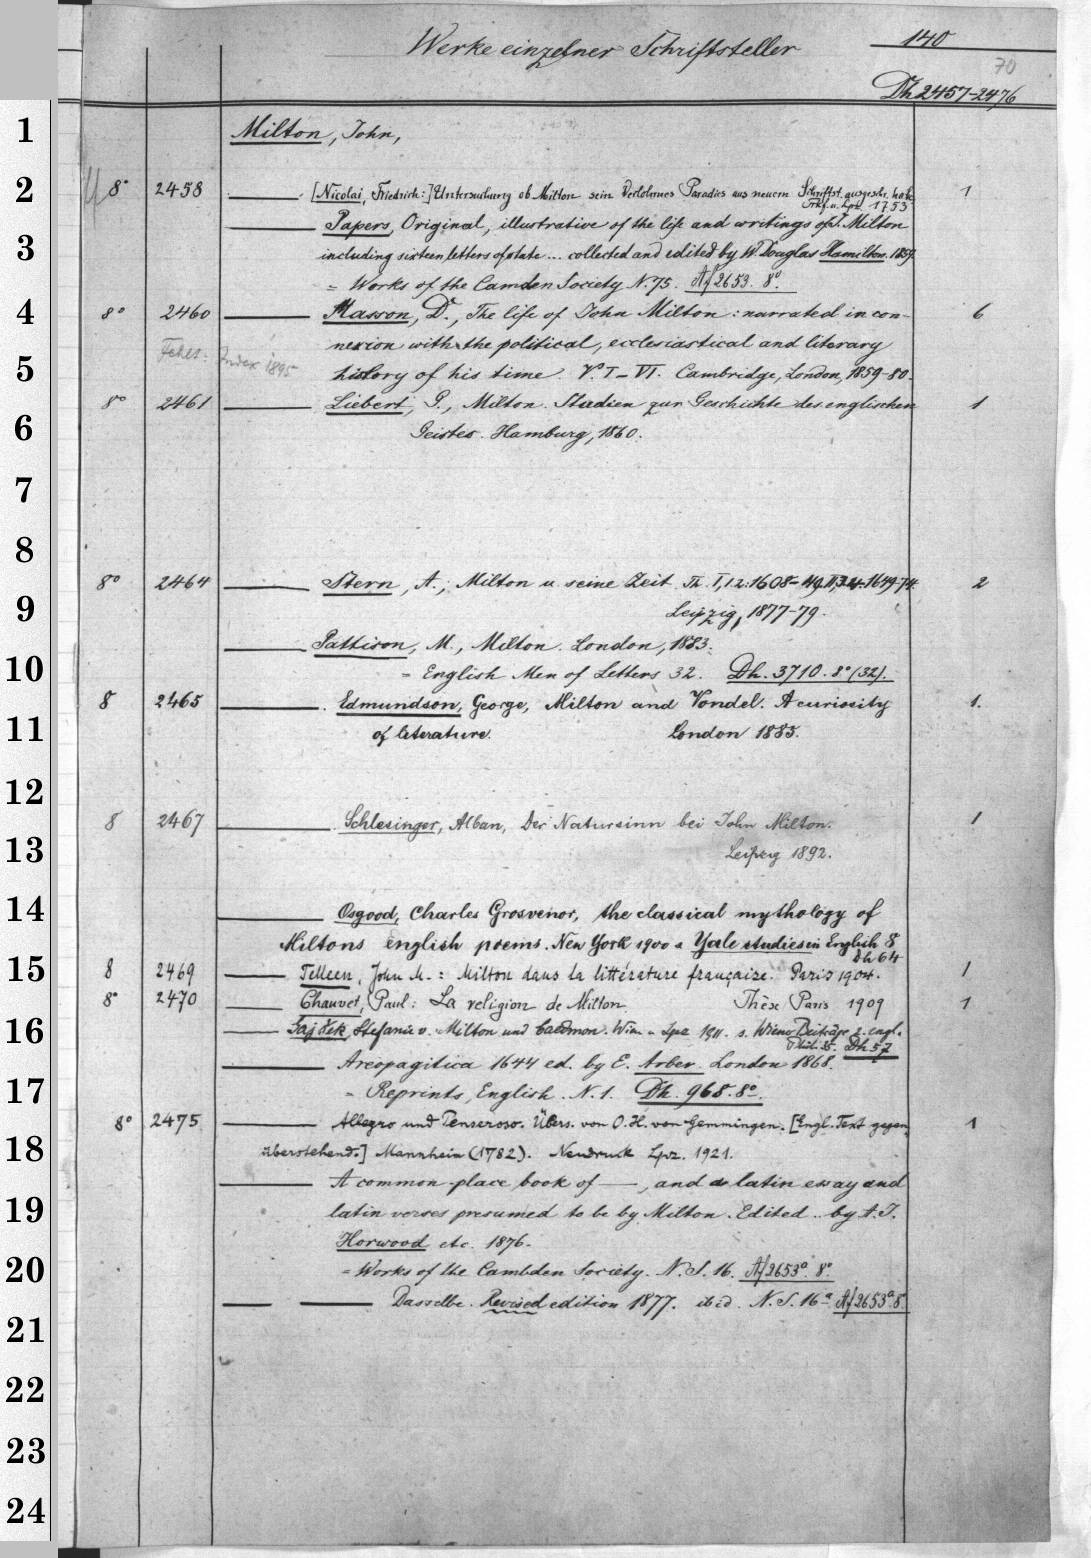 Werke einzelner Schriftsteller 140
70
Dh 2457-2476
1 Milton, John,
2 8° 2458 [Nicolai, Friedrich:] Untersuchung ob Milton sein Verlohrnes Paradies aus neuern Schriftst. ausgeschr. habe 1
Frkf. u. Lpz. 1753
Papers, Original, illustrative of the life and writings of J. Milton
3 including sixteen letters of state ... collected and edited by W. Douglas Hamilton. 1859.
= Works of the Camden Society N. 75. Af 2653. 8°
4 8° 2460 Masson, D., The life of John Milton: narrated in con- 6
nexion with the political, ecclesiastical and literary
Fehlt: Index 1895
5 history of his time. V° I-VI. Cambridge, London, 1859-80.
8° 2461 Liebert, P., Milton. Studien zur Geschichte des englischen 1
6 Geistes. Hamburg, 1860.
7
8
8° 2464 Stern, A., Milton u. seine Zeit. Th. I,1.2: 1608-49. II,3.4: 1649-74. 2
9 Leipzig, 1877-79.
Pattison, M., Milton. London, 1883.
10 = English Men of Letters 32. Dh. 3710. 8° (32).
8 2465 Edmundson, George, Milton and Vondel. A curiosity 1.
11 of literature. London 1885.
12
8 2467 Schlesinger, Alban, Der Natursinn bei John Milton. 1
13 Leipzig 1892.
14 Osgood, Charles Grosvenor, the classical mythology of
Miltons english poems. New York 1900 = Yale studies in English 8
Dh 64
15 8 2469 Telleen, John M.: Milton dans la littérature française. Paris 1904. 1
8° 2470 Chauvet, Paul: La religion de Milton Thèse Paris 1909 1
16 Gajšek, Stefanie v. Milton und Caedmon. Wien u. Lpz 1911. s. Wiener Beiträge z. engl.
Phil. 35. Dh 57
Areopagitica 1644 ed. by E. Arber. London 1868.
17 = Reprints, English. N. 1. Dh. 968. 8°.
8° 2475 Allegro und Penseroso. Übers. von O. H. von Gemmingen. [Engl. Text gegen 1
18 überstehend.] Mannheim (1782). Neudruck Lpz. 1921.
A common-place book of —, and a latin essay and
19 latin verses presumed to be by Milton. Edited .. by A. J.
Horwood etc. 1876.
20 = Works of the Cambden Society. N. S. 16. Af 2653a. 8°
Dasselbe. Revised edition 1877. ibid. N. S. 16a Af 2653a. 8.
21
22
23
24